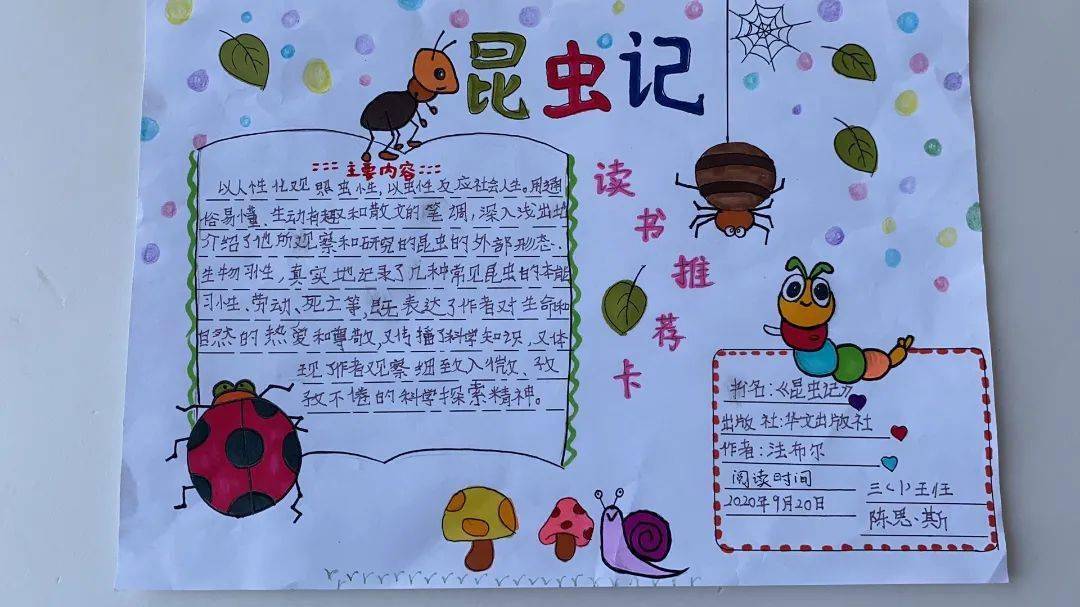 昆虫记
读书推荐卡
主要内容
以人性化观照虫性,以虫性反应社会人生。用通
俗易懂、生动有趣和散文的笔调,深入浅出地
介绍了他所观察和研究的昆虫的外部形态、
生物习性,真实地记录了几种常见昆虫的本能
习性、劳动、死亡等,既表达了作者对生命和
自然的热爱和尊敬,又传播了科学知识,又体
现了作者观察细致入微、孜
孜不倦的科学探索精神。
书名:《昆虫记》
出版社:华文出版社
作者:法布尔
阅读时间
2020年9月20日
三(1)班
陈思·斯